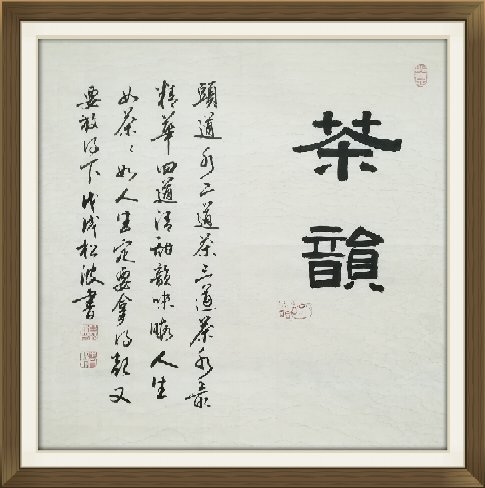 茶韻
頭道水二道茶三道茶水最
精華四道清甜韻味暇人生
如茶々如人生定要拿得起又
要放得下戊戌松波書